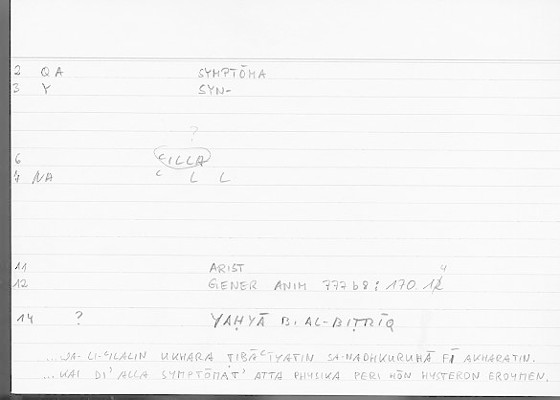 2 QA SYMPTŌMA
3 Y SYN-
?
6 ʿILLA
7 NA ʿ L L
11 ARIST
12 GENER ANIM 777 b 8 ; 170.12 4
14 ? YAḤYĀ B. AL-BIṬRĪQ
...WA-LI-ʿILALIN UKHARA ṬIBĀʿĪYATIN SA-NADHKURUHĀ FĪ AKHARATIN.
...KAI DI' ALLA SYMPTŌMAT' ATTA PHYSIKA PERI HŌN HYSTERON EROYMEN.